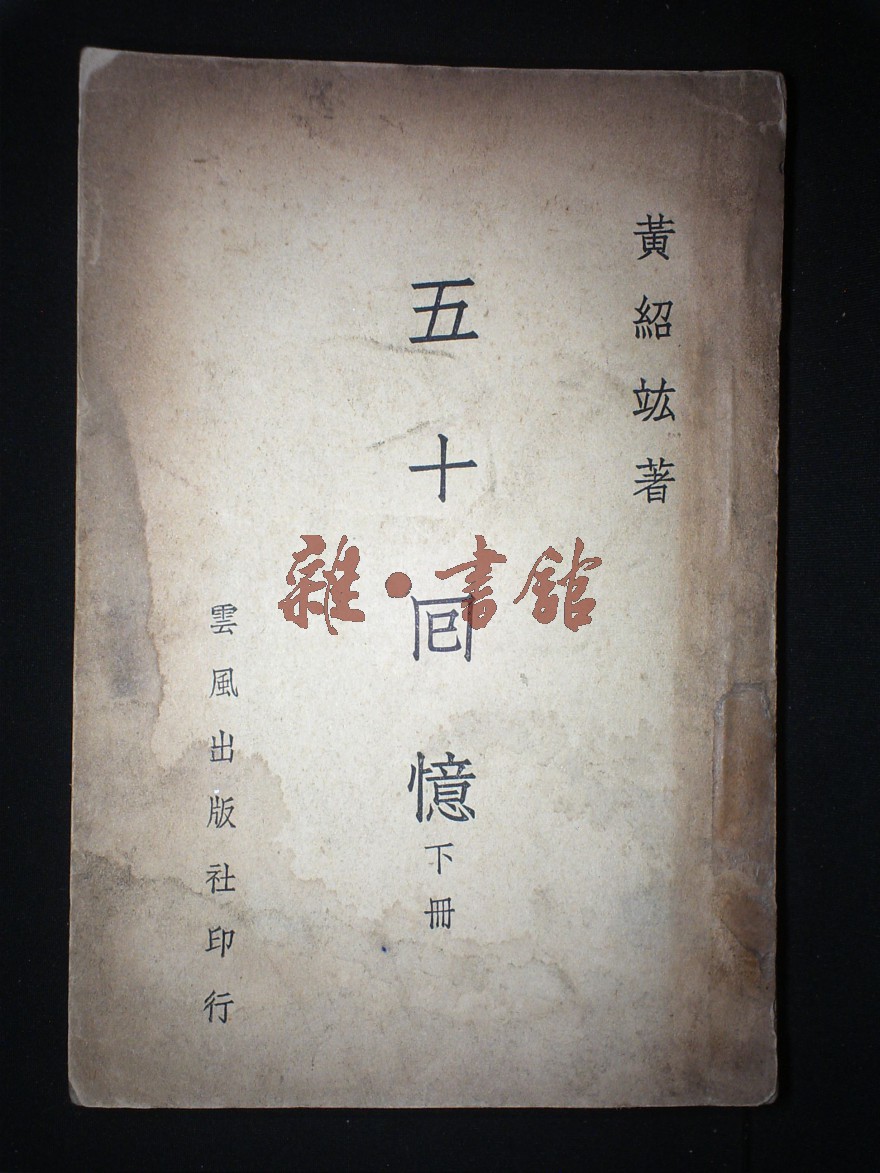 黃紹竑著
五十回憶
下冊
雲風出版社印行
雜·書館